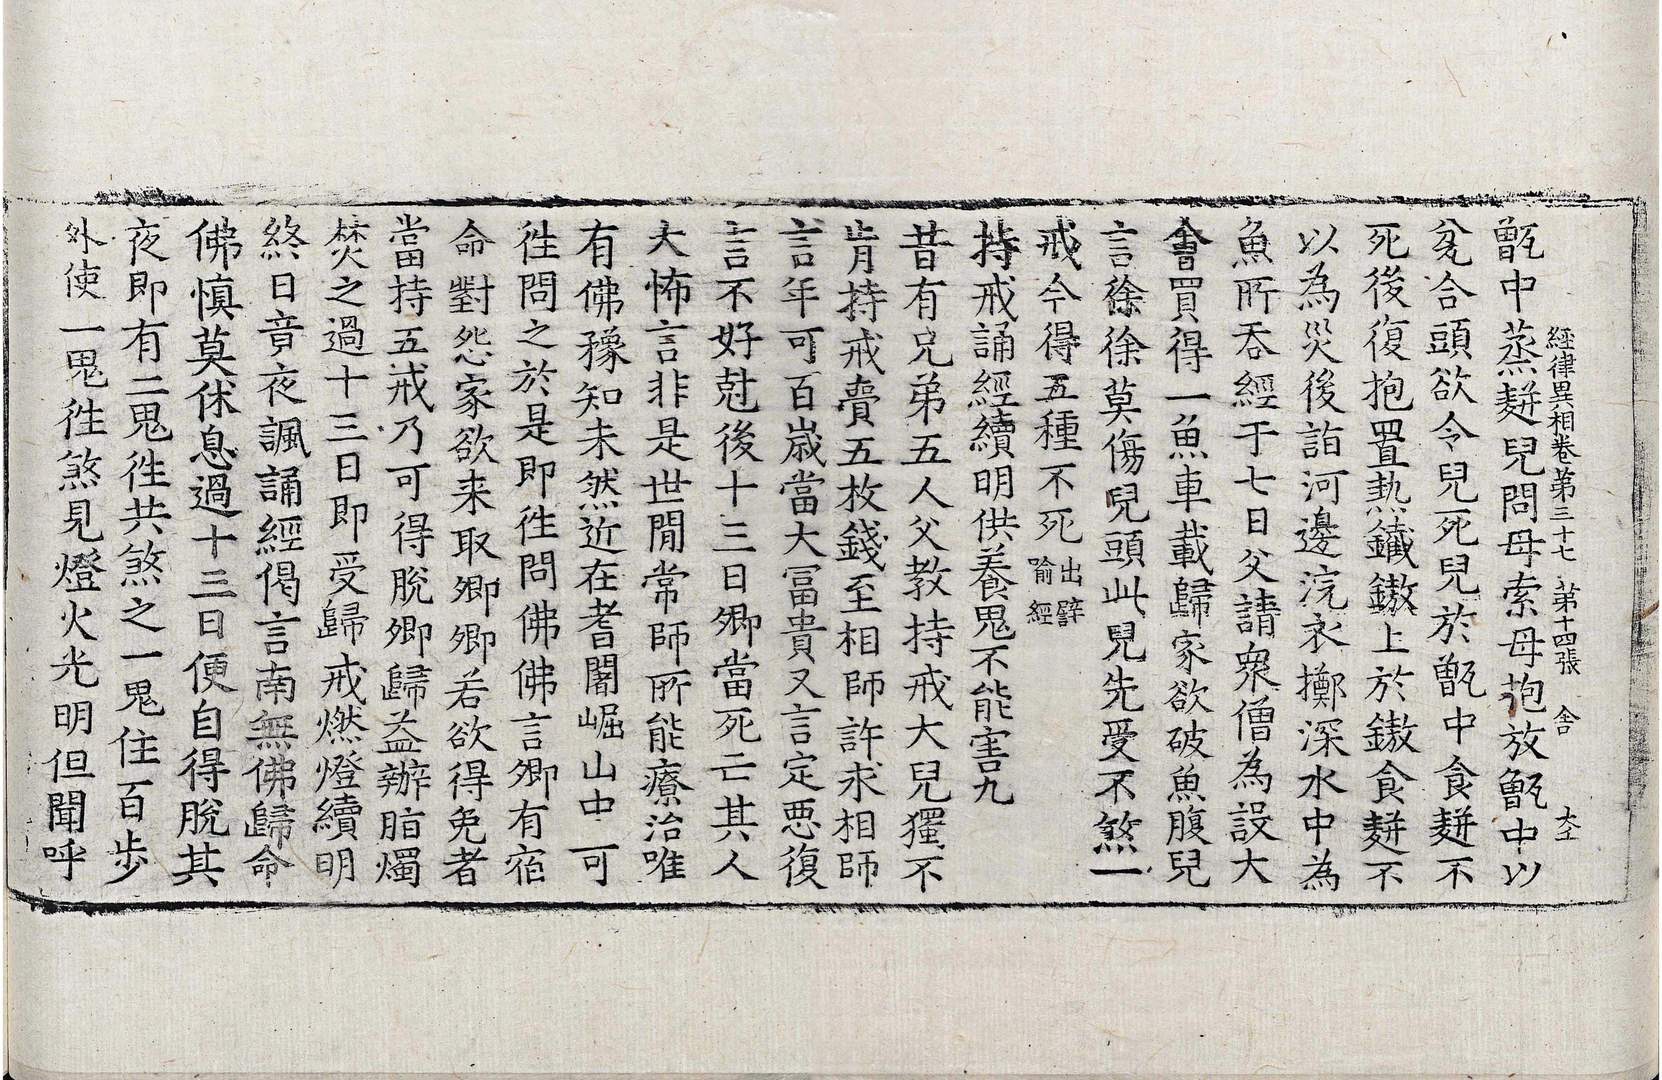 經律異相卷第三十七 第十四張 舍 大工
甑中蒸䴵兒問母索母抱放甑中以
瓫合頭欲令兒死兒於甑中食䴵不
死後復抱置熱鐵鏊上於鏊食䴵不
以為災後詣河邊浣衣擲深水中為
魚所吞經于七日父請衆僧為設大
會買得一魚車載歸家欲破魚腹兒
言徐徐莫傷兒頭此兒先受不煞一
戒今得五種不死出譬喻經
持戒誦經續明供養鬼不能害九
昔有兄弟五人父教持戒大兒獨不
肯持戒賷五枚錢至相師許求相師
言年可百歲當大冨貴又言定惡復
言不好尅後十三日卿當死亡其人
大怖言非是世閒常師所能療治唯
有佛豫知未然近在耆闍崛山中可
往問之於是即往問佛佛言卿有宿
命對怨家欲来取卿卿若欲得免者
當持五戒乃可得脫卿歸益辦脂燭
焚之過十三日即受歸戒燃燈續明
終日竟夜諷誦經偈言南無佛歸命
佛慎莫休息過十三日便自得脫其
夜即有二鬼往共煞之一鬼住百步
外使一鬼往煞見燈火光明但聞呼